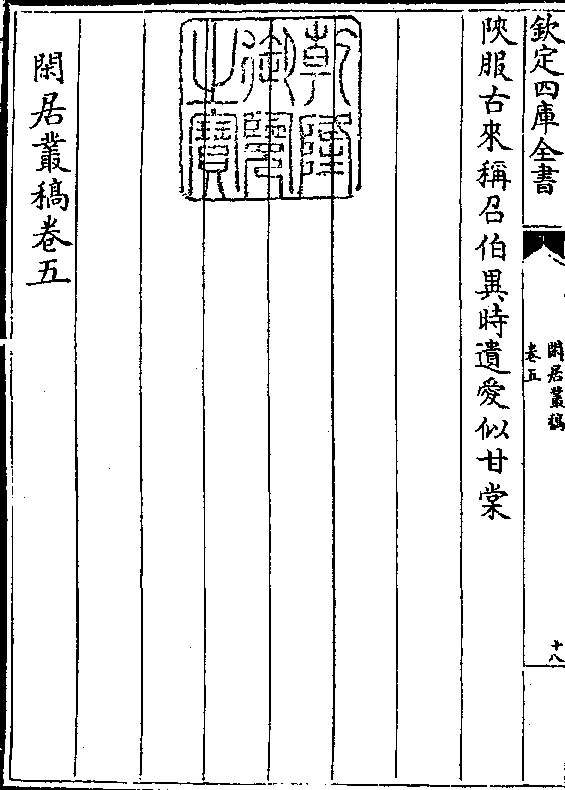 欽定四庫全書
閒居叢稿
卷五
十八
陜服古來稱召伯異時遺愛似甘棠
乾隆
御覽
之寶
閒居叢稿卷五